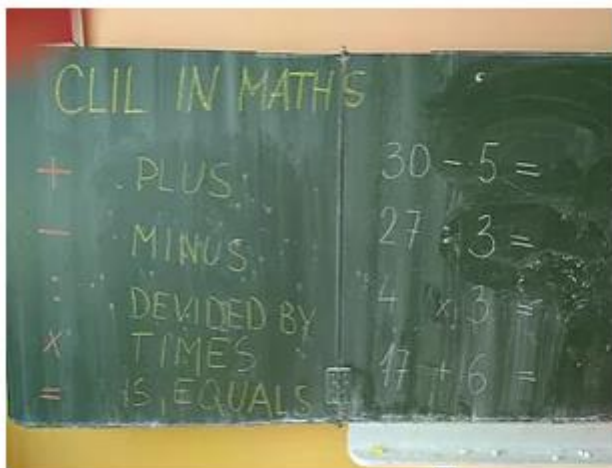 CLIL IN MATHS
+ PLUS
- MINUS
: DEVIDED BY
x TIMES
= IS, EQUALS
30 - 5 =
27 : 3 =
4 x 3 =
17 + 6 =